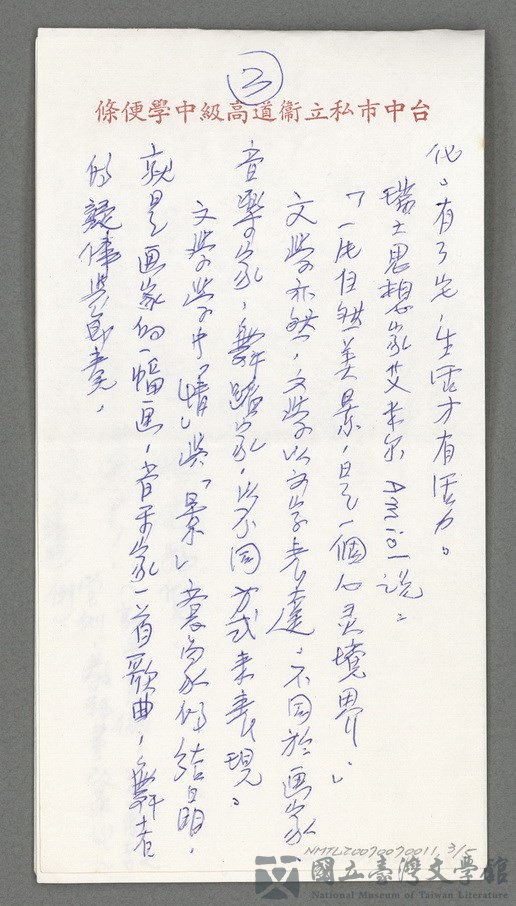 3
台中市私立衞道高級中學便條
化。有了它,生活才有活力。
瑞士思想家艾米尔 Amiel 说:
「一片自然美景,是一個心灵境界」。
文學亦然,文學以文字表達。不同於画家
音樂家,舞蹈家,以不同方式来表現。
文學中「情」與「景」交融的结晶,
就是画家的一幅画,音乐家一首歌曲,舞者
的凝佇與節奏。
NMTL20090090011, 3/5
國立臺灣文學館
National Museum of Taiwan Literature